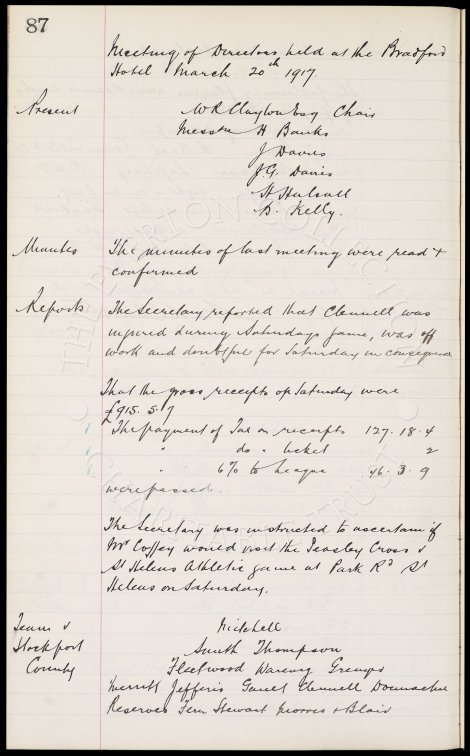 87
Meeting of Directors held at the Bradford
Hotel March 20th 1917.
Present W R Clayton Esq Chair
Messrs H Banks
J Davies
J.G. Davis
H Hulsall
D. Kelly.
Minutes The minutes of last meeting were read &
confirmed
Reports The Secretary reported that Clennell was
injured during Saturdays game, was off
work and doubtful for Saturday in consequence
That the gross receipts of Saturday were
£915. 5. 7
The payment of Tax on receipts 127. 18. 4
" do " ticket 2
" 6% to League 46. 3. 9
were passed.
The Secretary was instructed to ascertain if
Mr Coffey would visit the Peasley Cross v
St Helens Athletic game at Park Rd St
Helens on Saturday.
Team v Mitchell
Stockport Smith Thompson
County Fleetwood Wareing Grenyer
Merritt Jefferis Gault Clennell Donnachie
Reserves Fern Stewart Morris & Blair
THE EVERTON COLLECTION
CHARITABLE TRUST